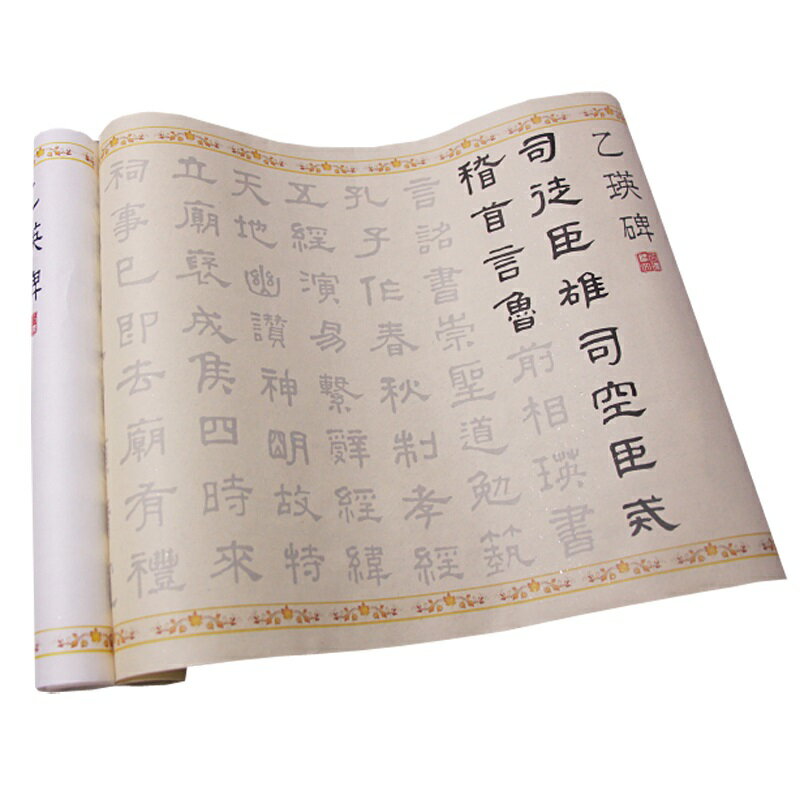 乙瑛碑
司徒臣雄司空臣戒
稽首言魯前相瑛書
言詔書崇聖道勉藝
孔子作春秋制孝經
五經演易繫辭經緯
天地幽讚神明故特
立廟褒成侯四時來
祠事已即去廟有禮
乙瑛碑